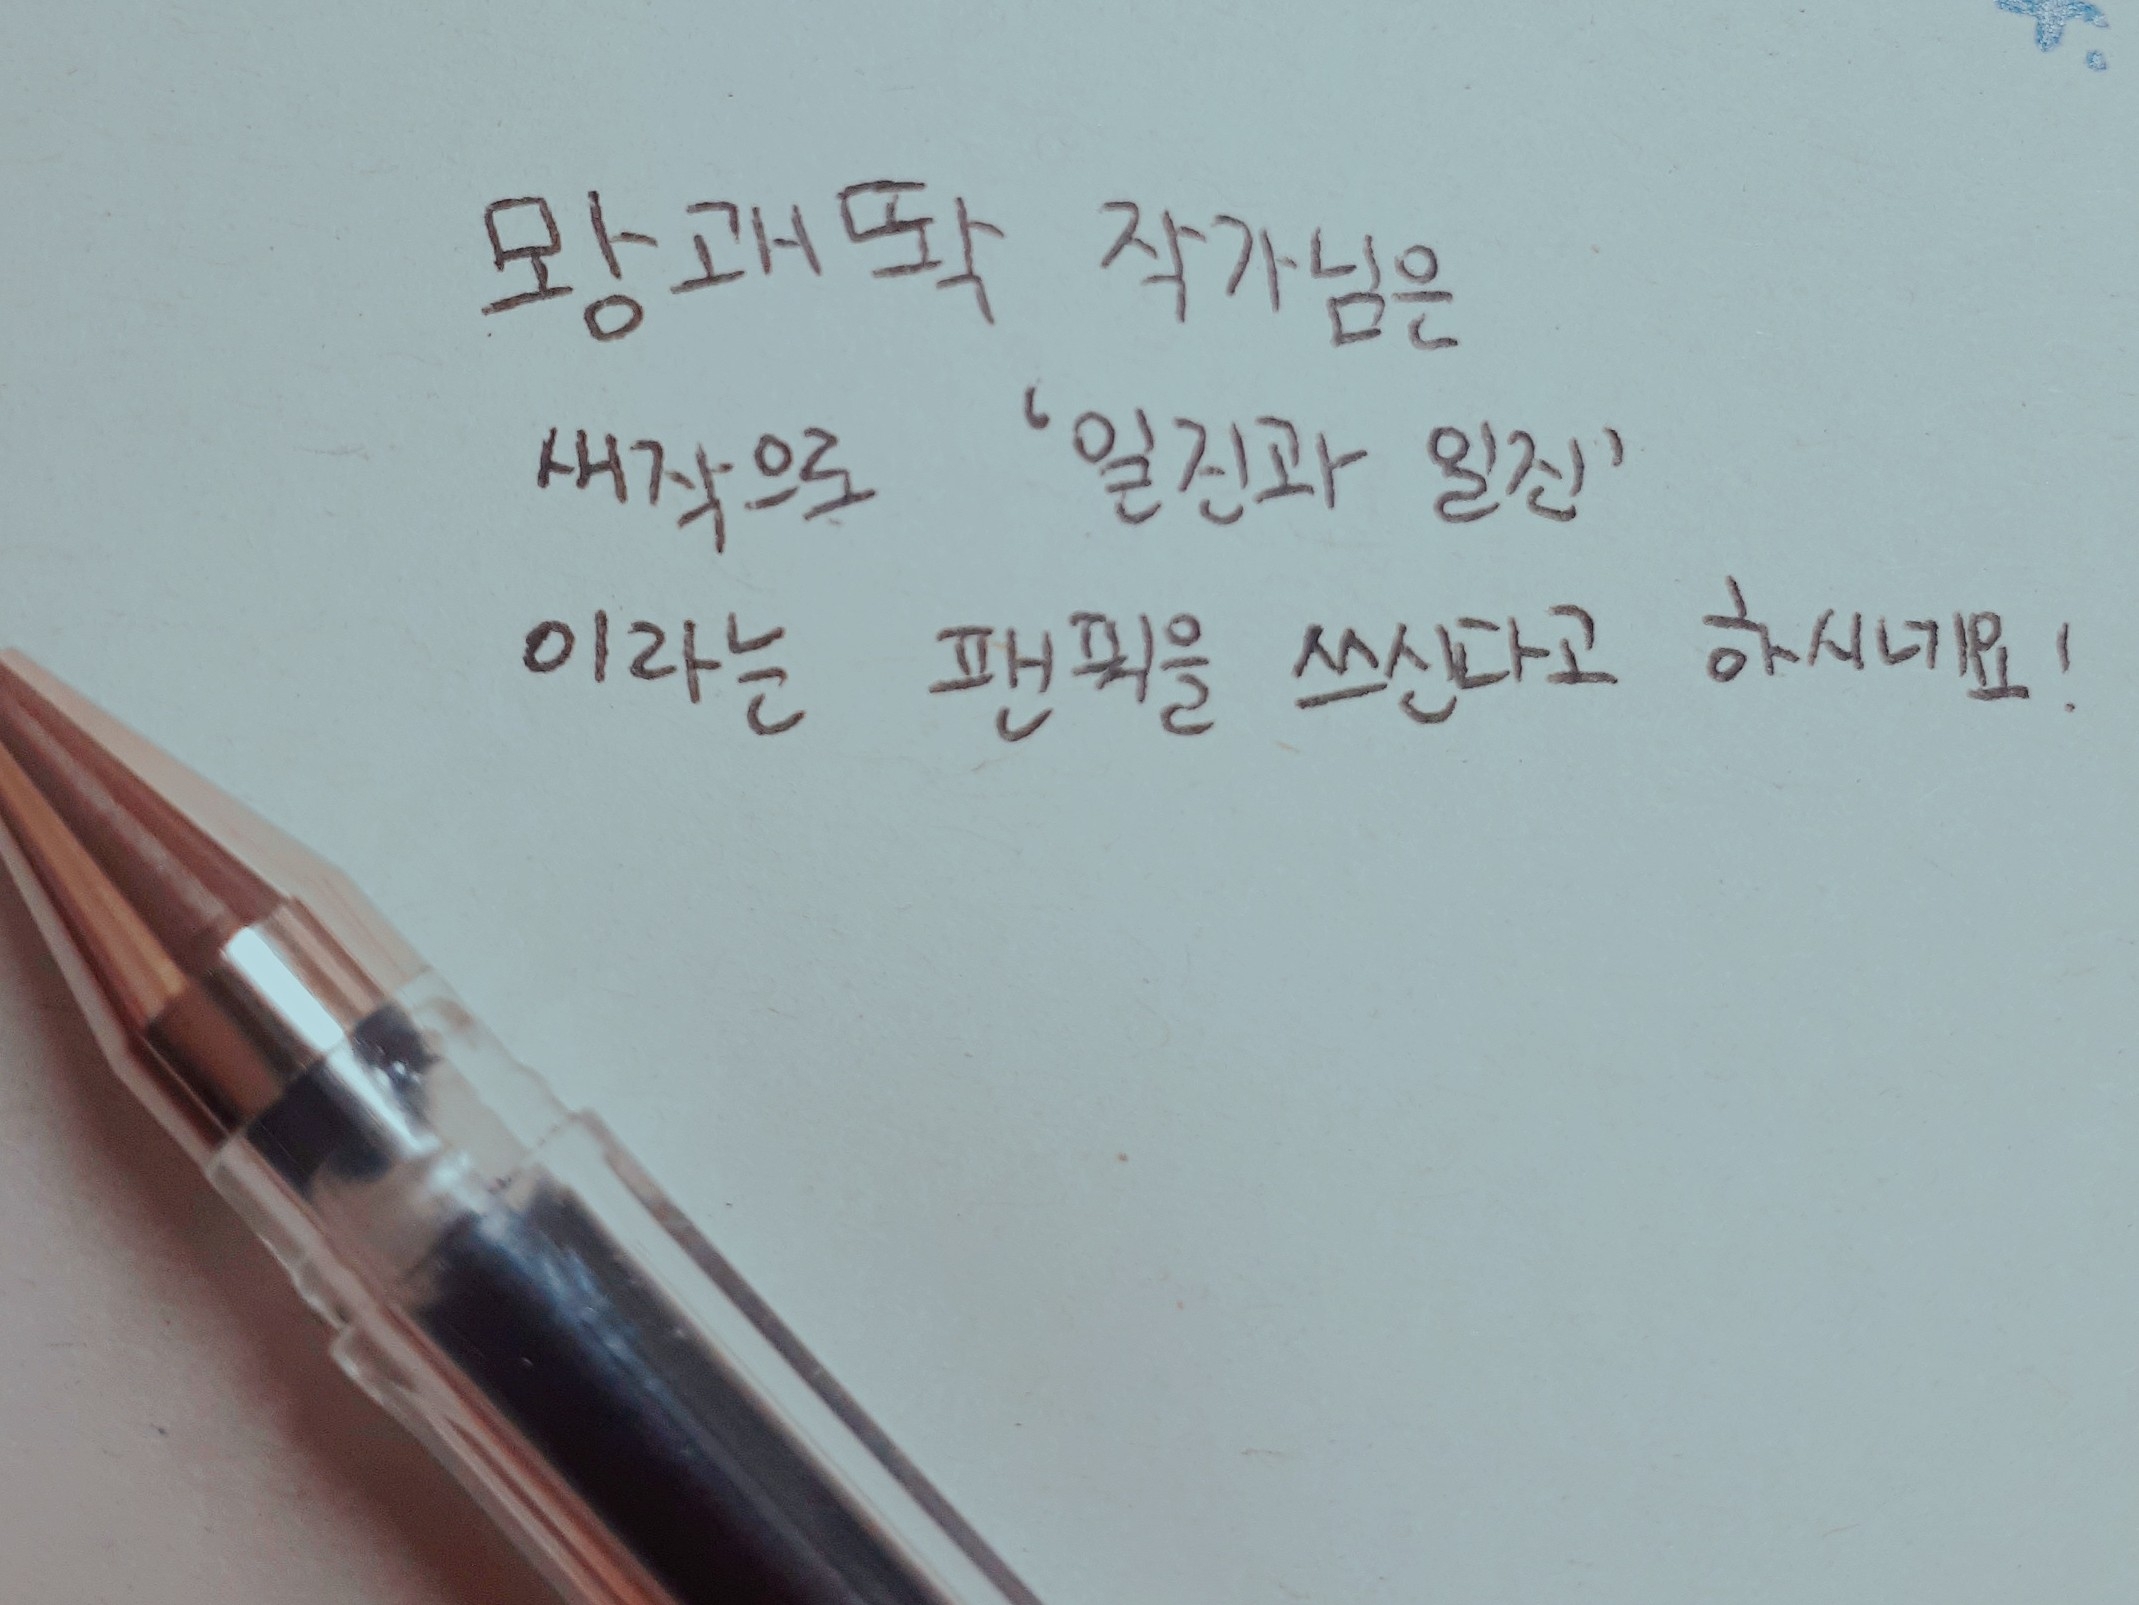 뫙괘똭 작가님은
새작으로 '일진과 왼진'
이라는 팬픽을 쓰신다고 하시네요!